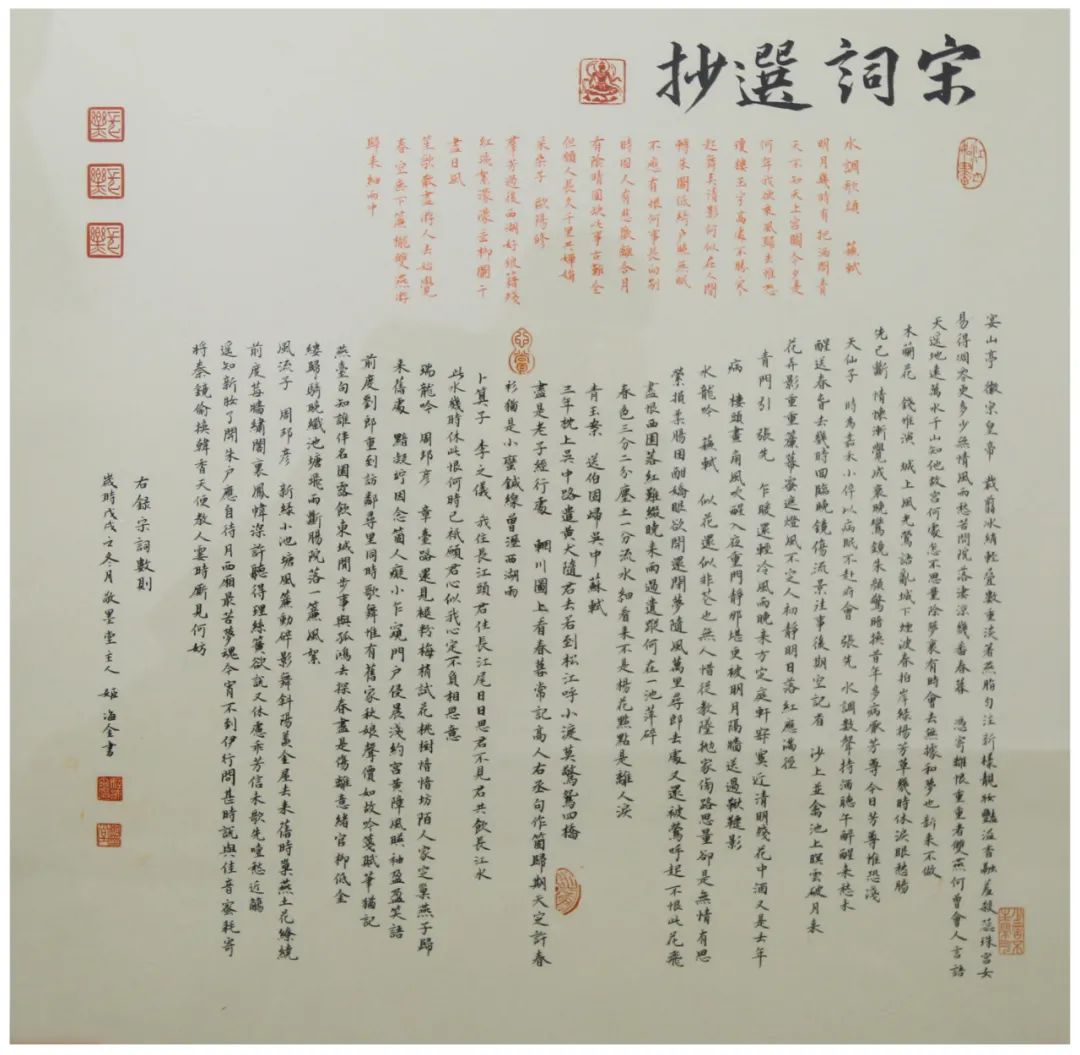 宋詞選抄
水調歌頭 蘇軾
明月幾時有把酒問青
天不知天上宮闕今夕是
何年我欲乘風歸去惟恐
瓊樓玉宇高處不勝寒
起舞弄清影何似在人間
轉朱閣低綺戶照無眠
不應有恨何事長向別
時圓人有悲歡離合月
有陰晴圓缺此事古難全
但願人長久千里共嬋娟
采桑子 歐陽修
群芳過後西湖好狼籍殘
紅飛絮濛濛垂柳闌干
盡日風
笙歌散盡游人去始覺
春空垂下簾櫳雙燕
歸來細雨中
宴山亭 徽宗皇帝 裁翦冰綃輕疊數重淡著燕脂勻注新樣靚妝豔溢香融羞殺蕊珠宮女
易得凋零更多少無情風雨愁苦問院落淒涼幾番春暮 憑寄離恨重重者雙燕何曾會人言語
天遥地遠萬水千山知他故宮何處怎不思量除夢裏有時曾去無據和夢也新來不做
木蘭花 錢惟演 城上風光鶯語亂城下煙波春拍岸綠楊芳草幾時休淚眼愁腸
先已斷 情懷漸覺成衰晚鸞鏡朱顏驚暗換昔年多病厭芳尊今日芳尊惟恐淺
天仙子 時為嘉禾小倅以病眠不赴府會 張先 水調數聲持酒聽午醉醒來愁未
醒送春春去幾時回臨晚鏡傷流景往事後期空記省 沙上並禽池上暝雲破月來
花弄影重重簾幕密遮燈風不定人初靜明日落紅應滿徑
青門引 張先 乍暖還輕冷風雨晚來方定庭軒寂寞近清明殘花中酒又是去年
病 樓頭畫角風吹醒入夜重門靜那堪更破明月隔牆送過鞦韆影
水龍吟 蘇軾 似花還似非花也無人惜從教墜拋家傍路思量卻是無情有思
縈損柔腸困酣嬌眼欲開還閉夢隨風萬里尋郎去處又還被鶯呼起不恨此花飛
盡恨西園落紅難綴曉來雨過遺蹤何在一池萍碎
春色三分二分塵土一分流水細看來不是楊花點點是離人淚
青玉案 送伯固歸吳中 蘇軾
三年枕上吳中路遣黃犬隨君去若到松江呼小渡莫驚鴛四橋
盡是老子經行處 輞川圖上看春暮常記高人右丞句作箇歸期天定許春
衫猶是小蠻鍼線曾溼西湖雨
卜算子 李之儀 我住長江頭君住長江尾日日思君不見君共飲長江水
此水幾時休此恨何時已祇願君心似我心定不負相思意
瑞龍吟 周邦彥 章臺路還見褪粉梅梢試花桃樹愔愔坊陌人家定巢燕子歸
來舊處 黯凝竚因念箇人癡小乍窺門戶侵晨淺約宮黃障風映袖盈盈笑語
前度劉郎重到訪鄰尋里同時歌舞惟有舊家秋娘聲價如故吟箋賦筆猶記
燕臺句知誰伴名園露飲東城閒步事與孤鴻去探春盡是傷離意緒官柳低金
縷歸騎晚纖池塘飛雨斷腸院落一簾風絮
風流子 周邦彥 新綠小池塘風簾動碎影舞斜陽羨金屋去來舊時巢燕土花繚繞
前度莓牆繡閣裏鳳幃深許聽得理絲簧欲說又休慮乖芳信未歌先噎愁近觴
遥知新妝了開朱戶應自待月西廂最苦夢魂今宵不到伊行問甚時說與佳音密耗寄
將秦鏡偷換韓香天便教人霎時廝見何妨
右錄宋詞數則
歲時戊戌之冬月敬墨堂主人 姬海金書